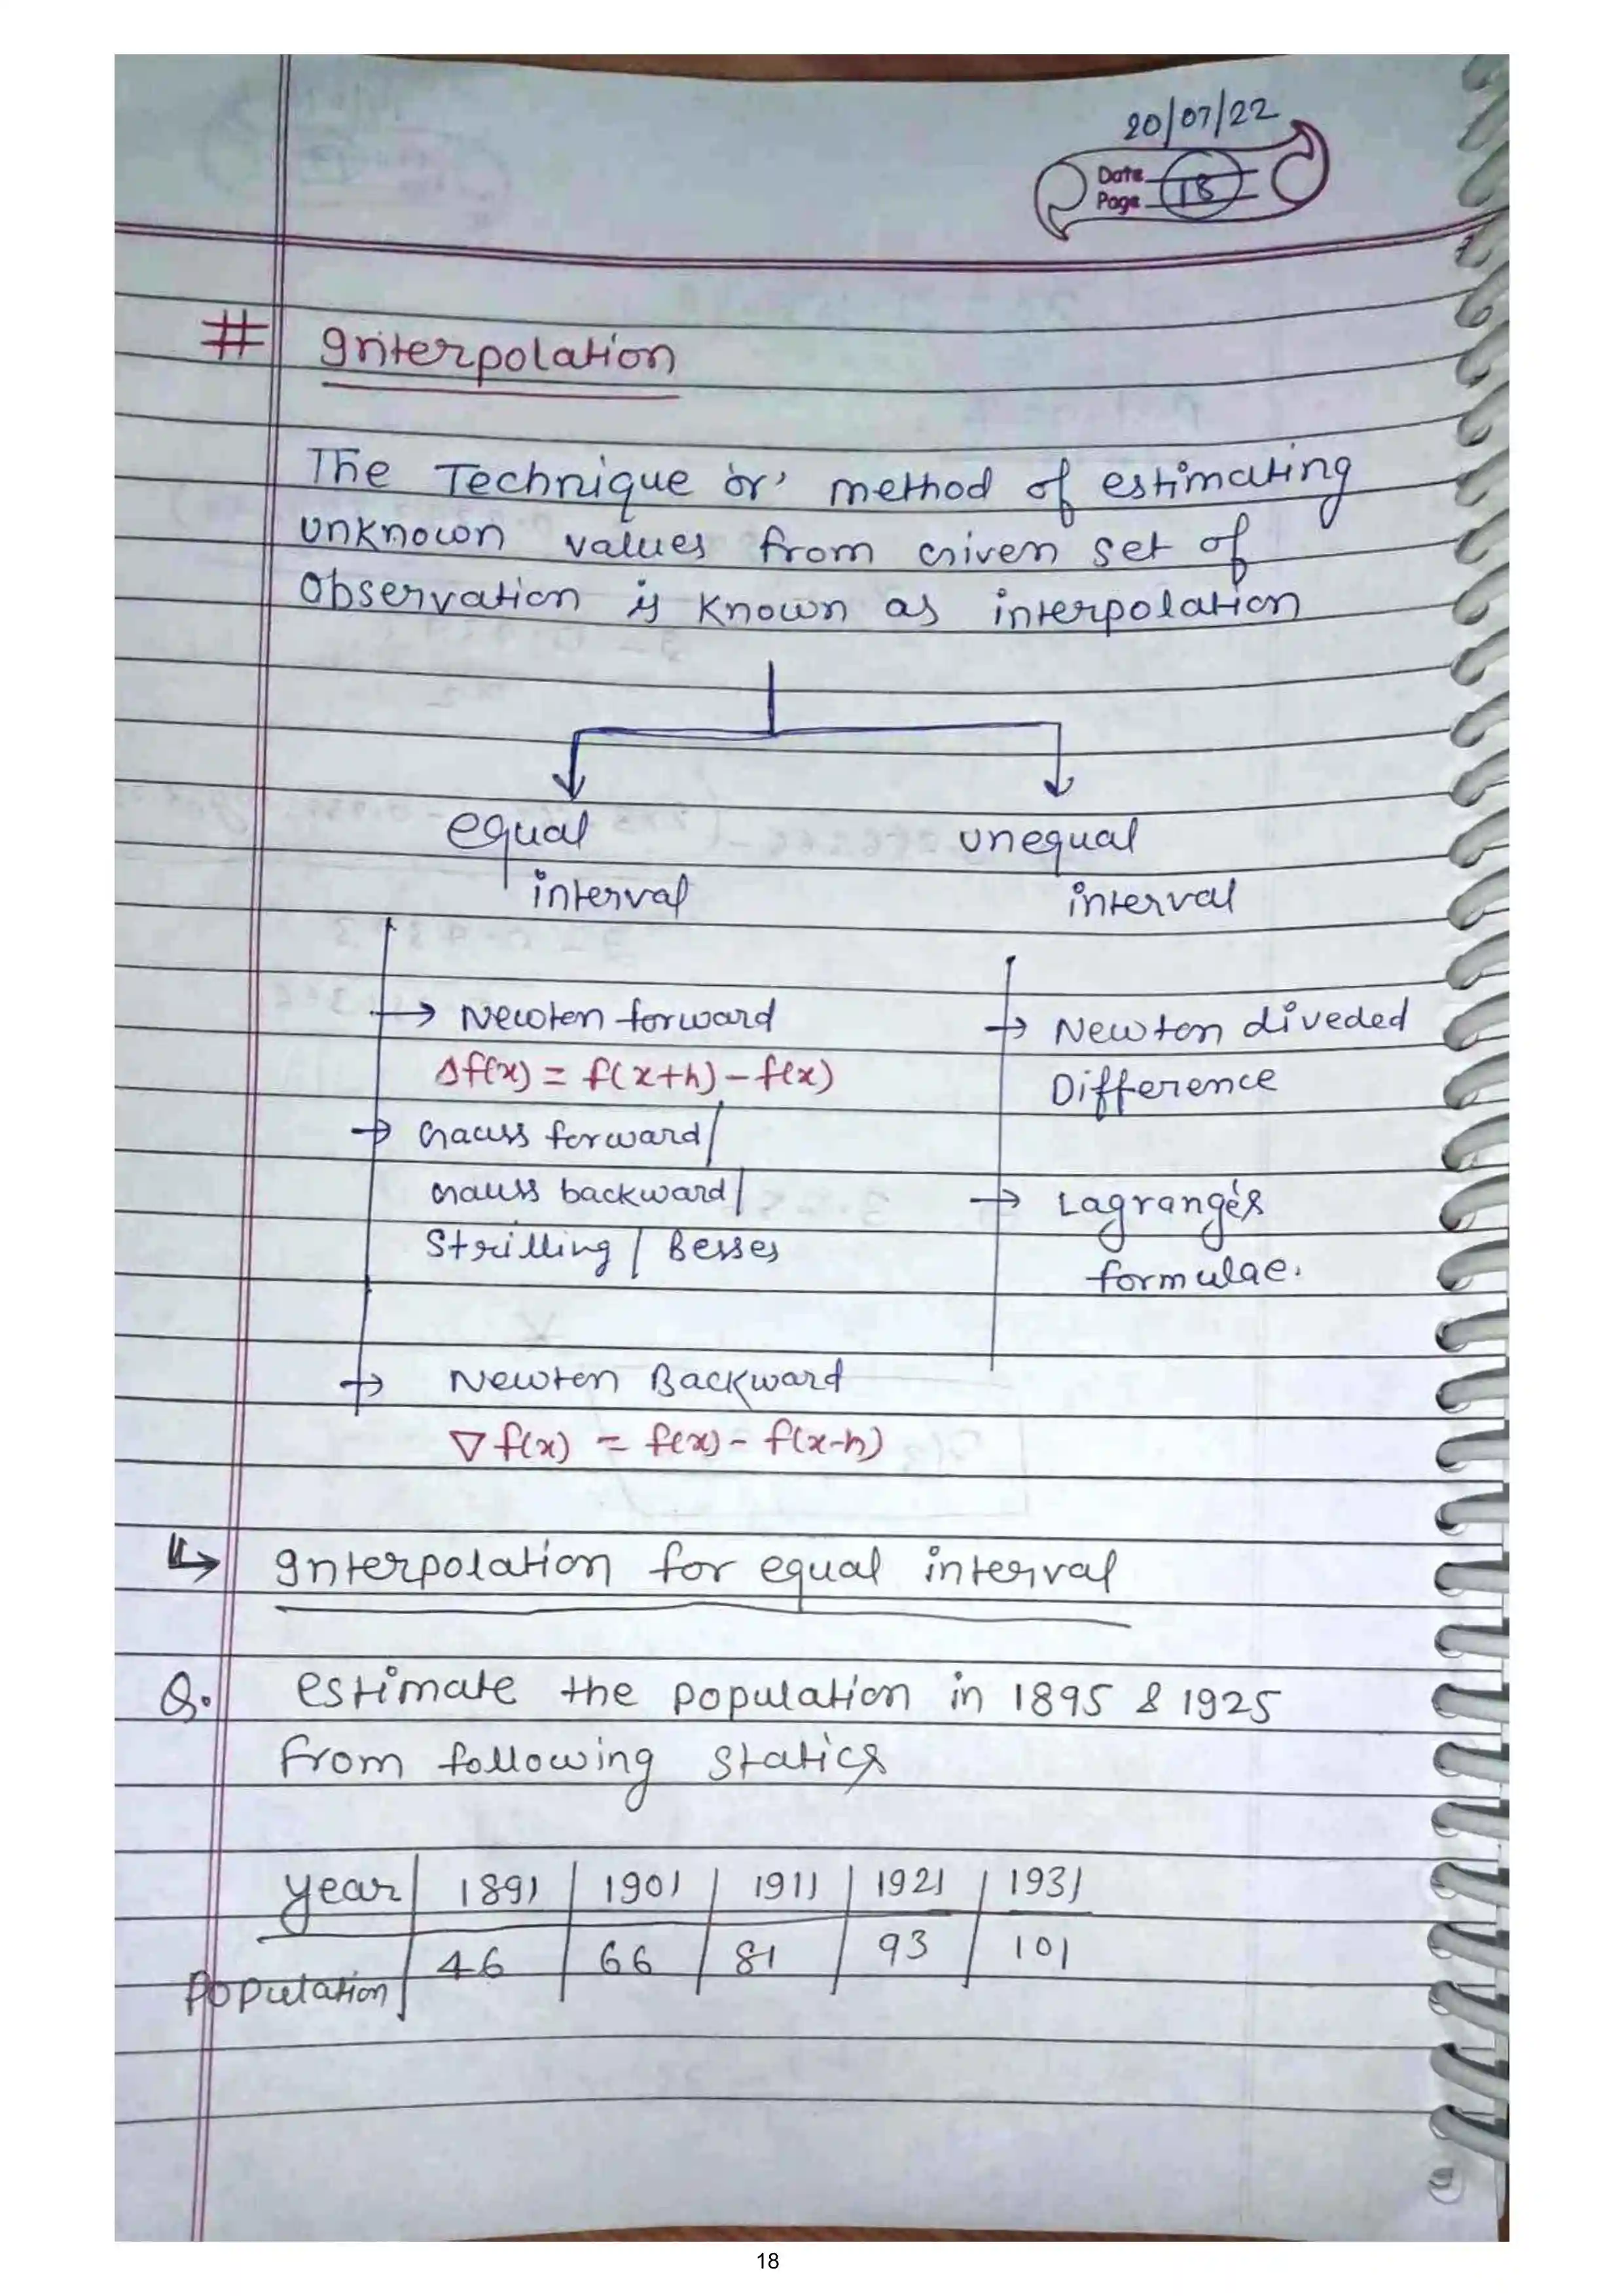 20/07/22
Date
Page 18
# Interpolation
The Technique 'or' method of estimating
unknown values from Given set of
Observation is known as interpolation
equal interval
unequal interval
→ Newton forward
Δf(x) = f(x+h) - f(x)
→ Gauss forward/
Gauss backward/
Strilling / Besses
→ Newton Backward
∇ f(x) = f(x) - f(x-h)
→ Newton diveded
Difference
→ Lagrange's
formulae.
↳ Interpolation for equal interval
Q. estimate the population in 1895 & 1925
From following Statics
year | 1891 | 1901 | 1911 | 1921 | 1931
Population | 46 | 66 | 81 | 93 | 101
18